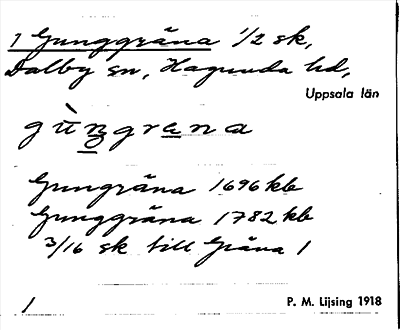 1 Gunggräna 1/2 sk,
Dalby sn, Hagunda hd,
Uppsala län
gùŋgrana
Gungräna 1696 kb
Gunggräna 1782 kb
3/16 sk till Gräna 1
1
P. M. Lijsing 1918